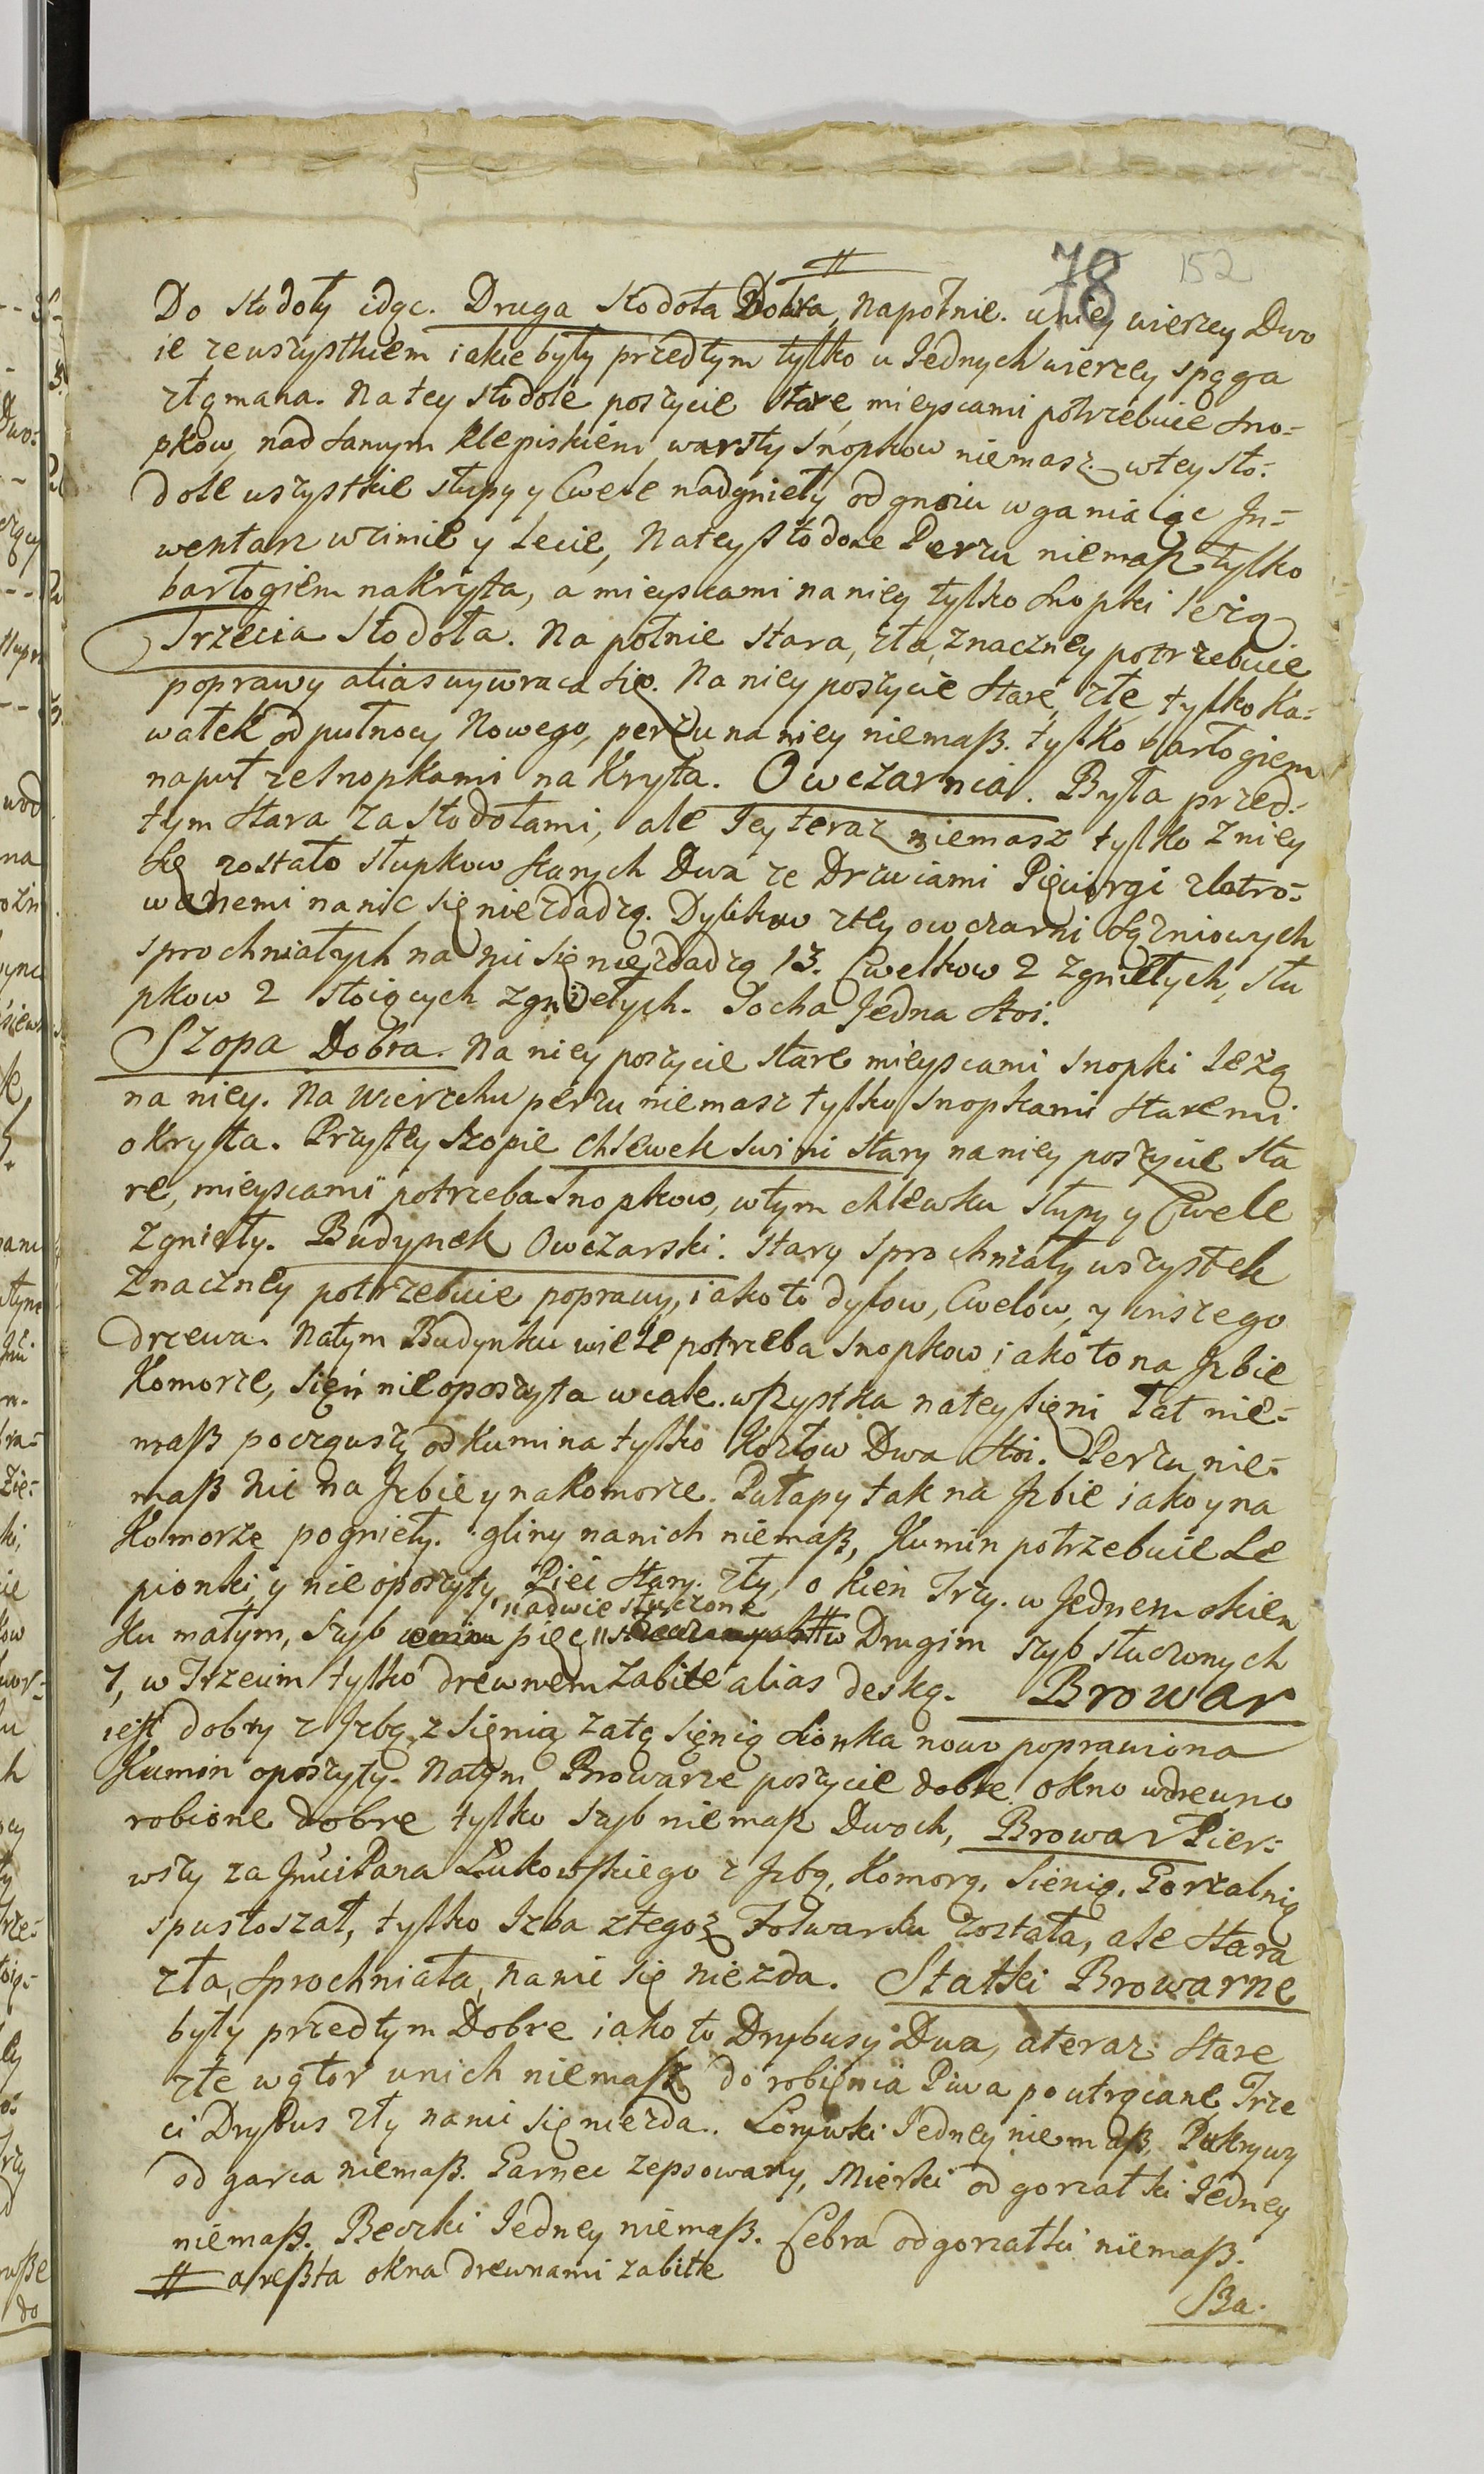 #
78 152
Do stodoły idąc. Druga stodoła Dobra, napołnie. u niey wierzey Dwo
ie zewszystkiem iakie były przedtym tylko u Jednych wierzey spąga
złąmana. Na tey stodole poszycie stare, mieyscami potrzebuie sno-
pkow, nad samym klepiskiem warsty snopkow niemasz. wtey sto-
dole wszystkie słupy y Cwele nadgnieły od gnoiu wganiaiąc In-
wentarz wzimie y Lecie, Natey stodole Perzu niemaß tylko
barłogiem nakryta, a mieyscami naniey tylko snopki leżą
Trzecia Stodoła. Na połnie stara, zła, znaczney potrzebuie
poprawy alias wywraca się. Na niey poszycie stare, złe, tylko ka-
wałek od pułnocy Nowego, perzu na niey niemaß. tylko barłogiem
naput zesnopkami nakryta. Owczarnia. Była przed-
tym stara za stodołami, ale Jey teraz niemasz tylko zniey
się zostało słupkow starych Dwa ze Drzwiami Pięciorgi zlotro-
wanemi nanic się niezdadzą. Dylikow ztey owczarni sążniowych
sprochniałych na nic się niezdadzą 13. Cwelkow 2 zgniełych, słu
pkow 2 stoiących zgniełych. Socha Jedna stoi.
Szopa Dobra. Na niey poszycie stare mieyscami snopki leżą
na niey. Na wierzchu perzu niemasz tylko snopkami staremi
okryta. Przytey szopie chlewek swini stary naniey poszycie sta
re, mieyscami potrzeba snopkow, wtym chlewku słupy y Cwele
zgnieły. Budynek Owczarski. stary sprochniały wszystek
znaczney potrzebuie poprawy, iako to dylow, Cwelow, y inszego
drzewa. Natym Budynku wiele potrzeba snopkow iako to na Izbie
Komorze, Sięń nieoposzyta wcale. wßystka natey sięni Łat nie-
maß począwszy od kumina tylko Kozłow Dwa stoi. Perzu nie-
maß nic na Izbie y nakomorze. Pułapy tak na Izbie iako y na
Komorze pognieły. gliny nanich niemaß, Kumin potrzebuie Le
pionki, y nieoposzyty, Piec stary. zły, o kien Trzy. w Jednem okien
"adwie stłuczone
ku małym, szyb pięc" # w Drugim szyb stuczonych
7, w Trzecim tylko drewnem zabite alias deską. Browar
iest dobry z Izbą, z Sięnią zatą sięnią słonka nowo poprawiona
Kumin oposzyty. Natym Browarze poszycie dobre okno wdrewno
robione dobre tylko szyb niemaß Dwoch, Browar Pier-
wszy za Jmci Pana Łukowskiego z Izbą, Komorą, Sienią, Gorzalnią
spustoszał, tylko Izba ztegoż Folwarku została, ale stara
zła, sprochniała, nanic się niezda. Statki Browarne
były przedtym Dobre iako to Drybusy Dwa, ateraz stare
złe wątor unich niemaß do robienia Piwa poutrącane Trze
ci Drybus zły nanic się niezda. Konewki Jedney niemaß, Pokrywy
od garca niemaß. Garnec zepsowany, Mierki od gorzałki Jedney
niemaß. Beczki Jedney niemaß. Cebra od gorzałki niemaß.
# areßta okna drewnami zabite
Ba.